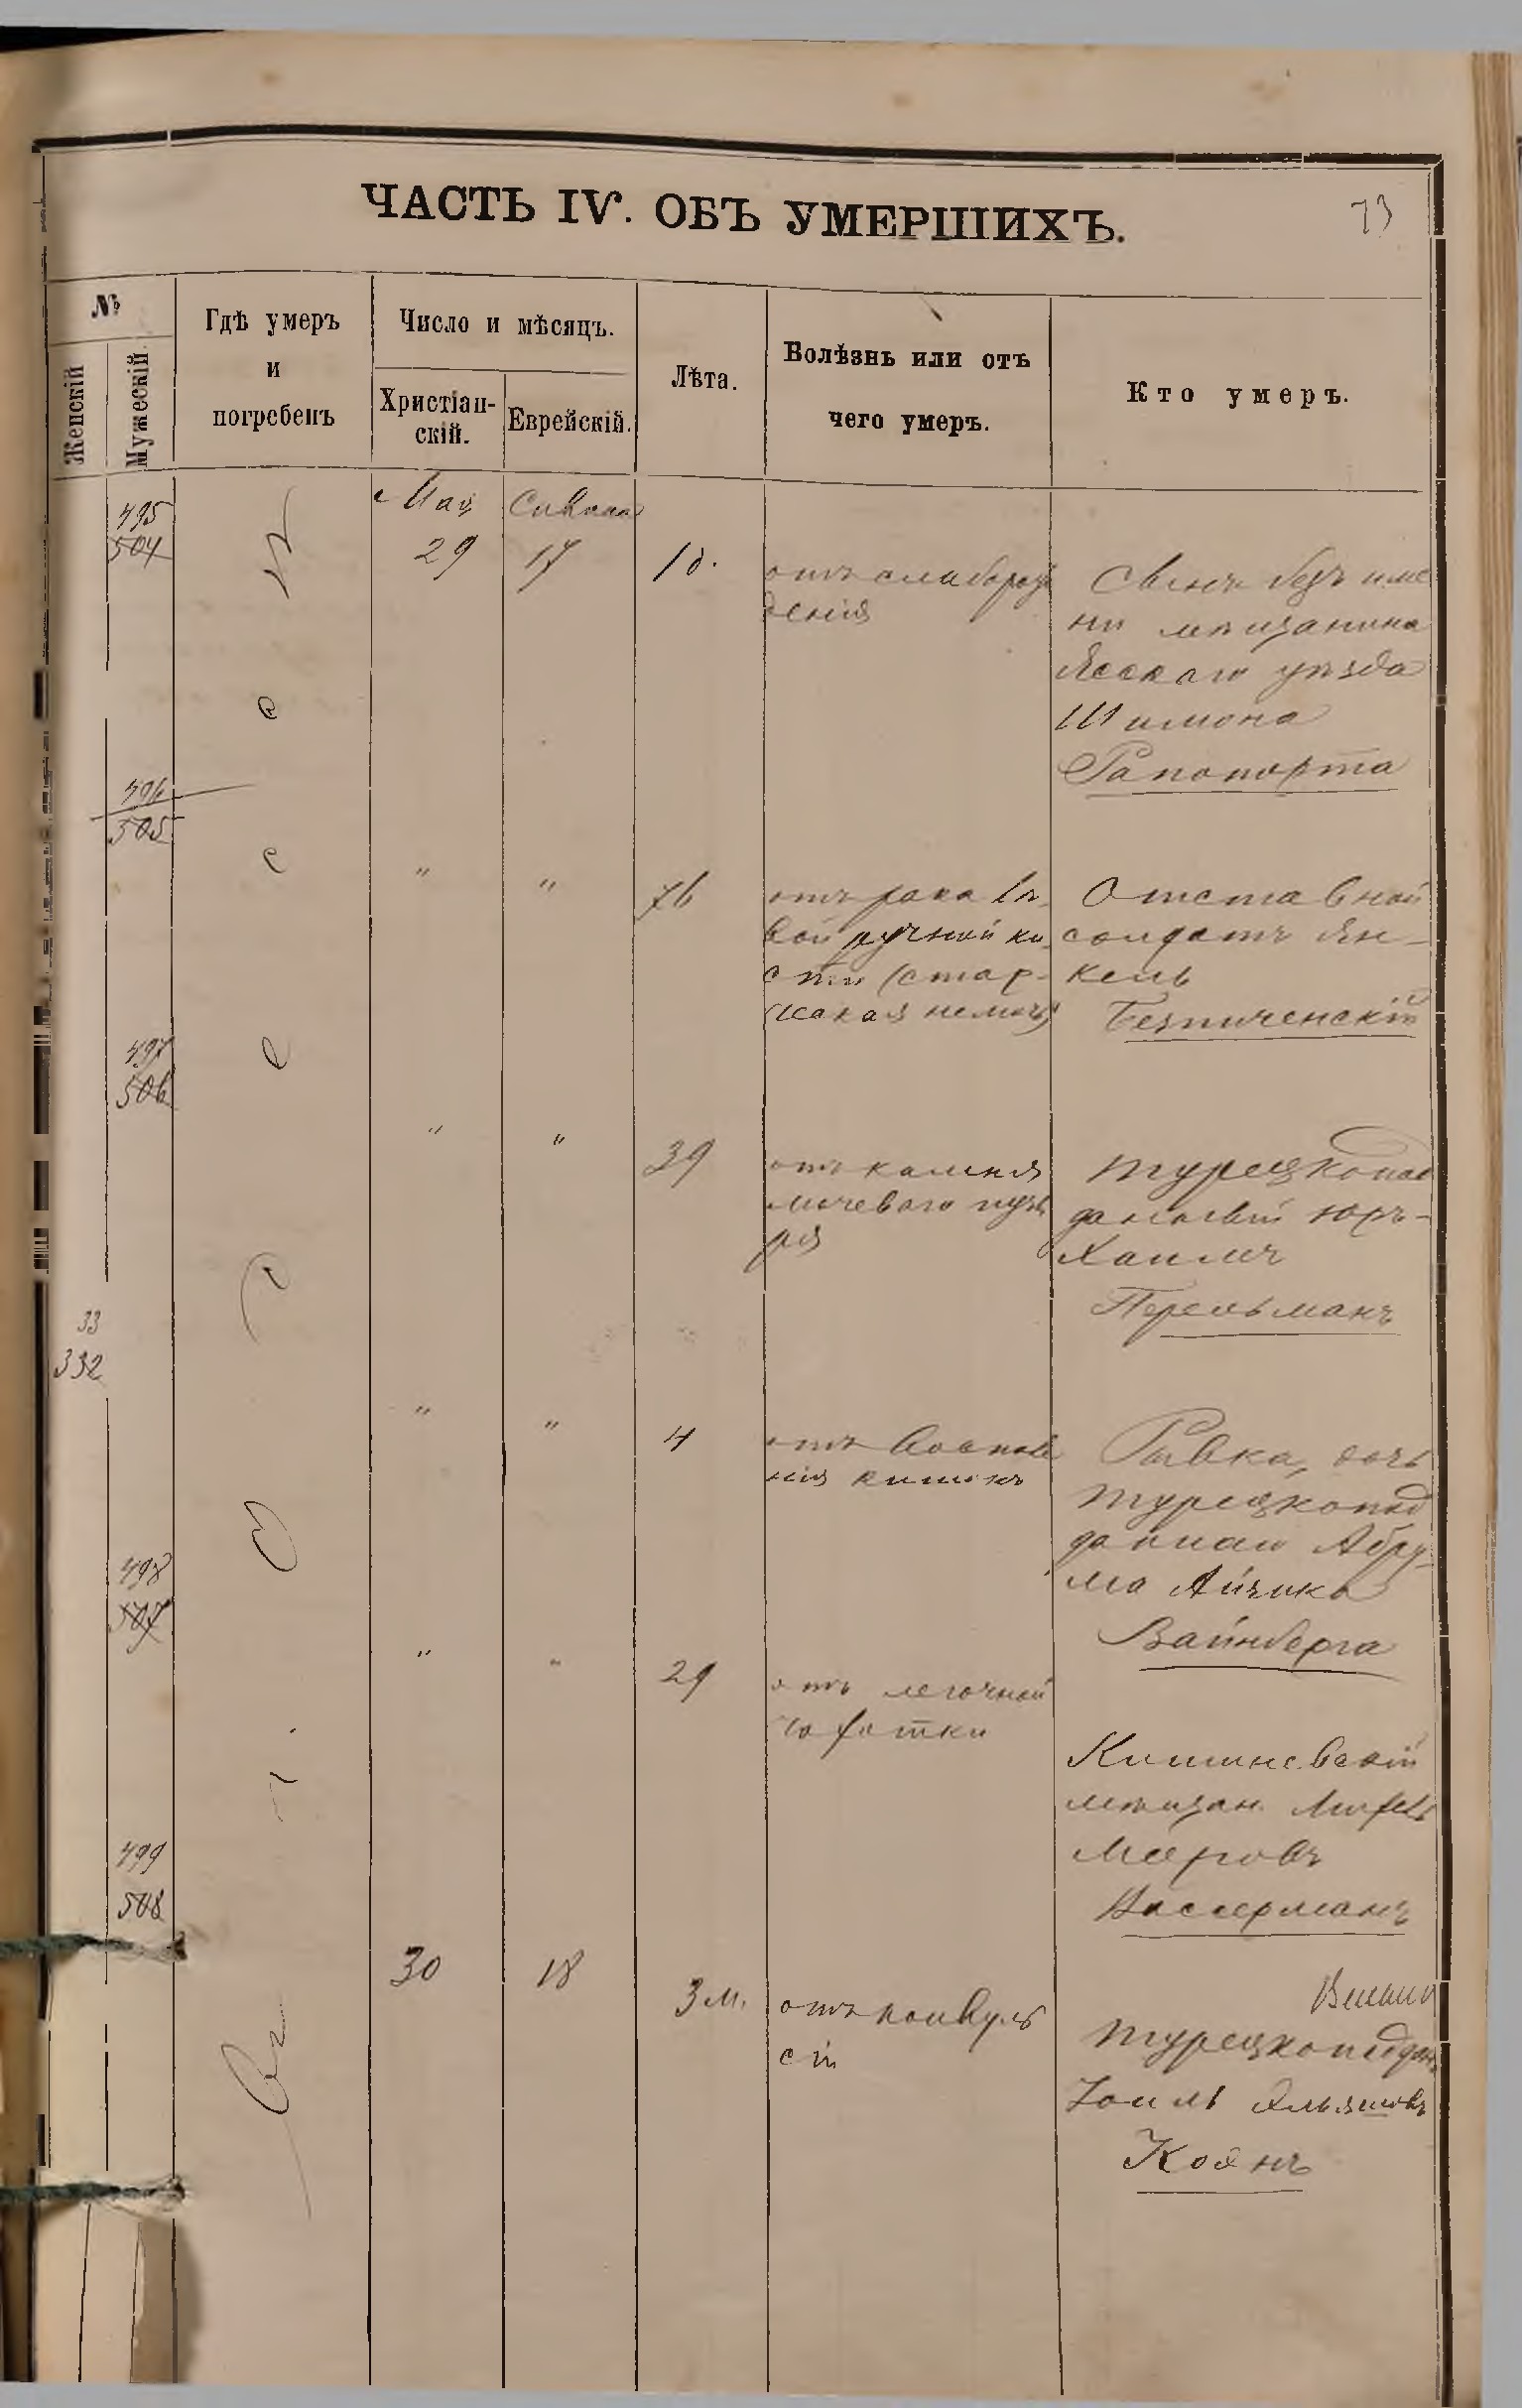 ЧАСТЬ IV. ОБЪ УМЕРШИХЪ.
73
№
Женскій
Мужескій.
Гдѣ умеръ
и
погребенъ
Число и мѣсяцъ.
Христіан-
скій.
Еврейскій.
Лѣта.
Болѣзнь или отъ
чего умеръ.
Кто умеръ.
495
504
Мая
29
Сивана
17
1 д.
отъ слаборож
денія
Сынъ безъ име
ни мѣщанина
Ясскаго уѣзда
Шимона
Рапопорта
496
505
"
"
76
отъ рака лѣ-
вой ручной ки
сти (стар-
ческая немочь)
Отставной
солдатъ Ян-
кель
Безпиченскій
497
506
"
"
39
отъ камня
мочеваго пузы
ря
Турецкопод
данный Юръ-
Хаимъ
Перельманъ
33
332
"
"
4
отъ воспале
нія кишокъ
Рывка, дочь
турецкопод
даннаго Абру-
ма Айзика
Вайнберга
498
507
"
"
29
отъ легочной
чахотки
Кишиневскій
мѣщан.
Мееровъ
Вассерманъ
499
508
30
18
3 м.
отъ конвуль
сій
Турецкоподдан.
Хаимъ
Коэнъ